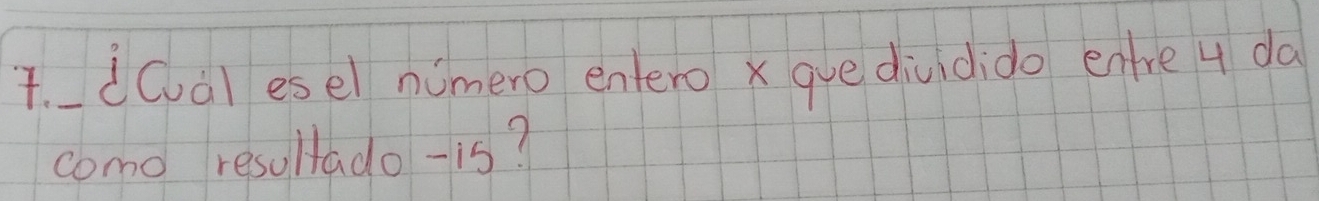 7._ ¿Cuál es el número entero x que dividido entre 4 da
como resultado -15?